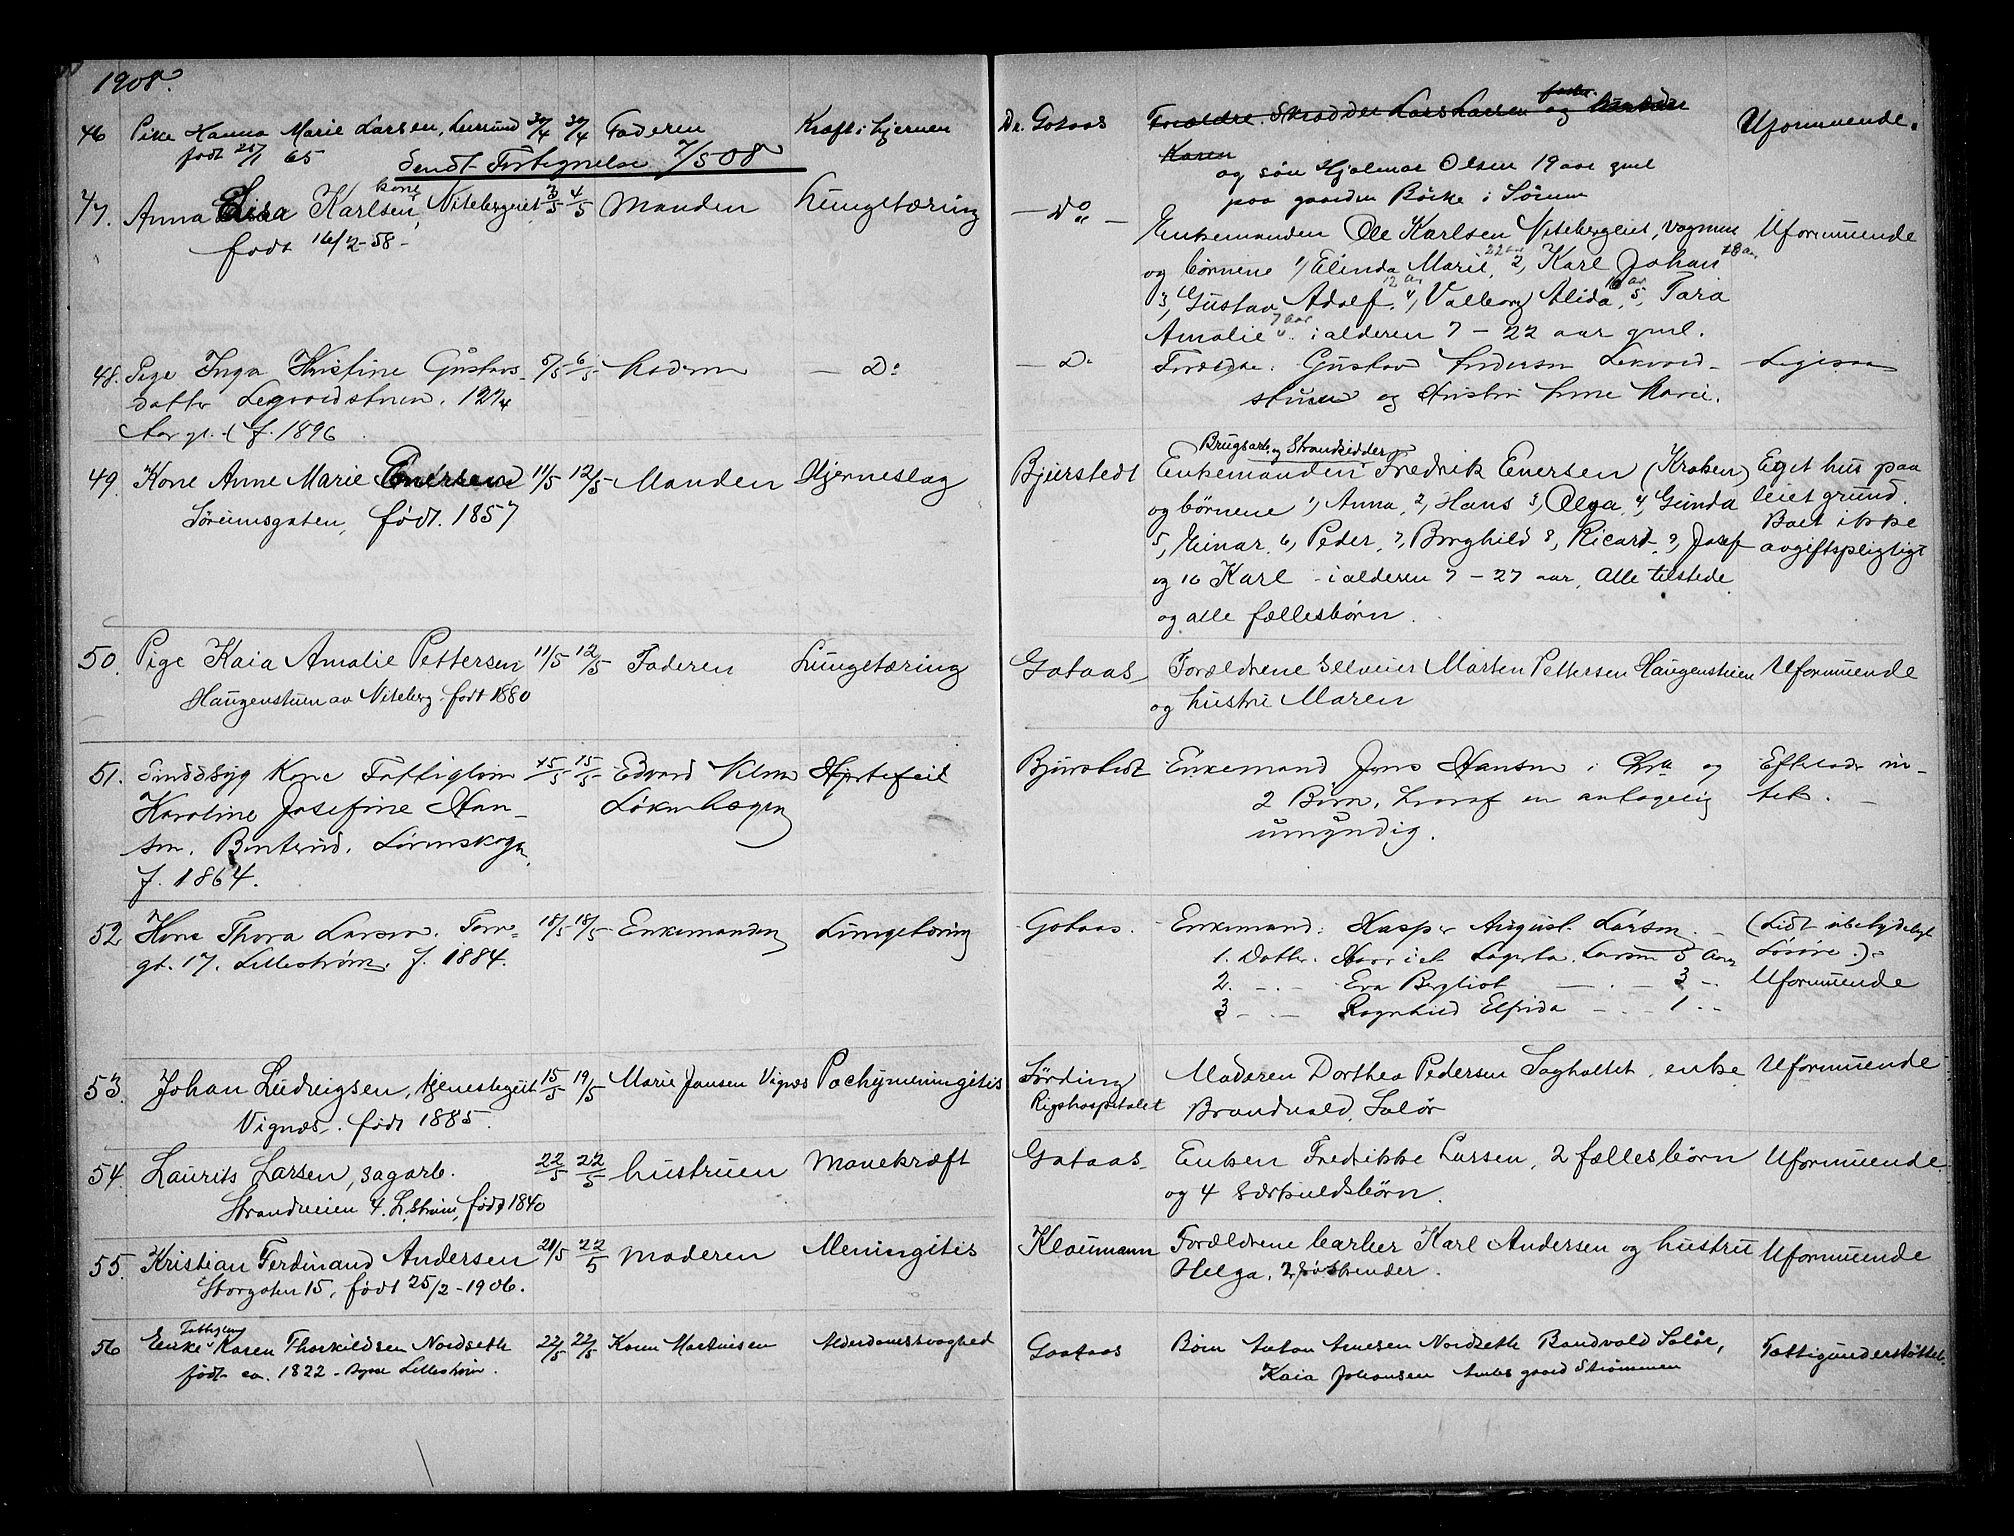 1908.
46 Pike Hanna Marie Larsen, Lersund 30/4 30/4 Faderen Kræft i hjernen Dr. Gotaas Forældre. Skrædder Lars Larsen og hustru Uformuende.
født 25/1 65 Karen
Sendt Fortegnelse 7/5 08 og søn Hjalmar Olsen 19 aar gml
paa gaarden Börke i Sörum
47. Anna Lisa Karlsen, kone, Nitebergeiet 3/5 4/5 Manden Lungetæring — Do —
født 16/2-58- Enkemanden Ole Karlsen Nitebergeiet, vognm Uformuende
og børnene 1, Elinda Marie 22 aar 2, Karl Johan 18 aar
3, Gustav Adolf 12 aar 4, Valborg Alida 5, Tara
Amalie 7 aar i alderen 7 - 22 aar gml.
48. Pige Inga Kristine Gustavs- 5/5 6/5 Moderen — Do — Do Forældre: Gustav Andersen Lekvold- Ligesaa
datter Legvoldstuen. 12 1/4 stuen og Hustru Anne Marie.
Aar gl. f. 1896
49. Kone Anne Marie Enersen 11/5 12/5 Manden Hjerneslag Bjerstedt Brugsarb. og Strandsidder
Enkemanden Fredrik Enersen (Kroken) Eget hus paa
Sørumsgaten, født. 1857 og børnene 1, Anna, 2, Hans 3, Olga, 4, Gunda leiet grund.
5, Einar, 6, Peder, 7, Borghild 8, Ricard 9, Josef Boet ikke
avgiftspligtigt
og 10 Karl - i alderen 7 - 27 aar, Alle tilstede
og alle fællesbørn.
50. Pige Kaia Amalie Pettersen 11/5 12/5 Faderen Lungetæring Gotaas Forældrene Selveier Marten Pettersen Haugenstuen Uformuende
Haugenstuen av Niteberg. født 1880 og hustru Maren
51. Sindssyg Kone Fattiglem 15/5 15/5 Edvard Løkenhagen Hjertefeil Bjerstedt Enkemand Jens Hansen i Kra og Efterlader in-
Karoline Josefine Han- 2 Børn, hvoraf en antagelig tet.
sen. Binterud. Lørenskogen umyndig.
f. 1864.
52 Kone Thora Larsen. Torv- 18/5 18/5 Enkemanden Lungetæring Gotaas. Enkemand: Kasper August Larsen (Lidt ubetydeligt
gt. 17. Lillestrøm. f. 1884. 1. Datter. Harriet Lagerta Larsen 5 Aar Løsøre.)
2. Eva Bergliot 3 Uformuende
3 Ragnhild Elfrida 1
53. Johan Ludvigsen, tjenestegut 15/5 19/5 Marie Jansen Vignæs Pachymeningitis Lørding Moderen Dorthea Pedersen Sagholtet, enke Uformuende
Vignæs. født 1885. Rigshospitalet Brandvald, Solør
54. Laurits Larsen, sagarb. 22/5 22/5 hustruen Mavekræft Gotaas Enken Fredrikke Larsen, 2 fællesbørn Uformuende
Strandveien 4. L.strøm, født 1840 og 4 særkuldsbørn.
55. Kristian Ferdinand Andersen 21/5 22/5 Moderen Meningitis Kloumann Forældrene barber Karl Andersen og hustru Uformuende
Storgaten 15, født 25/2-1906. Helga, 2 søskender.
56 Fattiglem
Enke Karen Thorkildsen Nordseth 22/5 22/5 Karen Martinsen Alderdomssvaghed Gotaas Børn Anton Arnesen Nordseth Brandvold Solør, Fattigunderstøttet.
født ca. 1822 Lillestrøm. Kaia Johansen gaard Strømmen